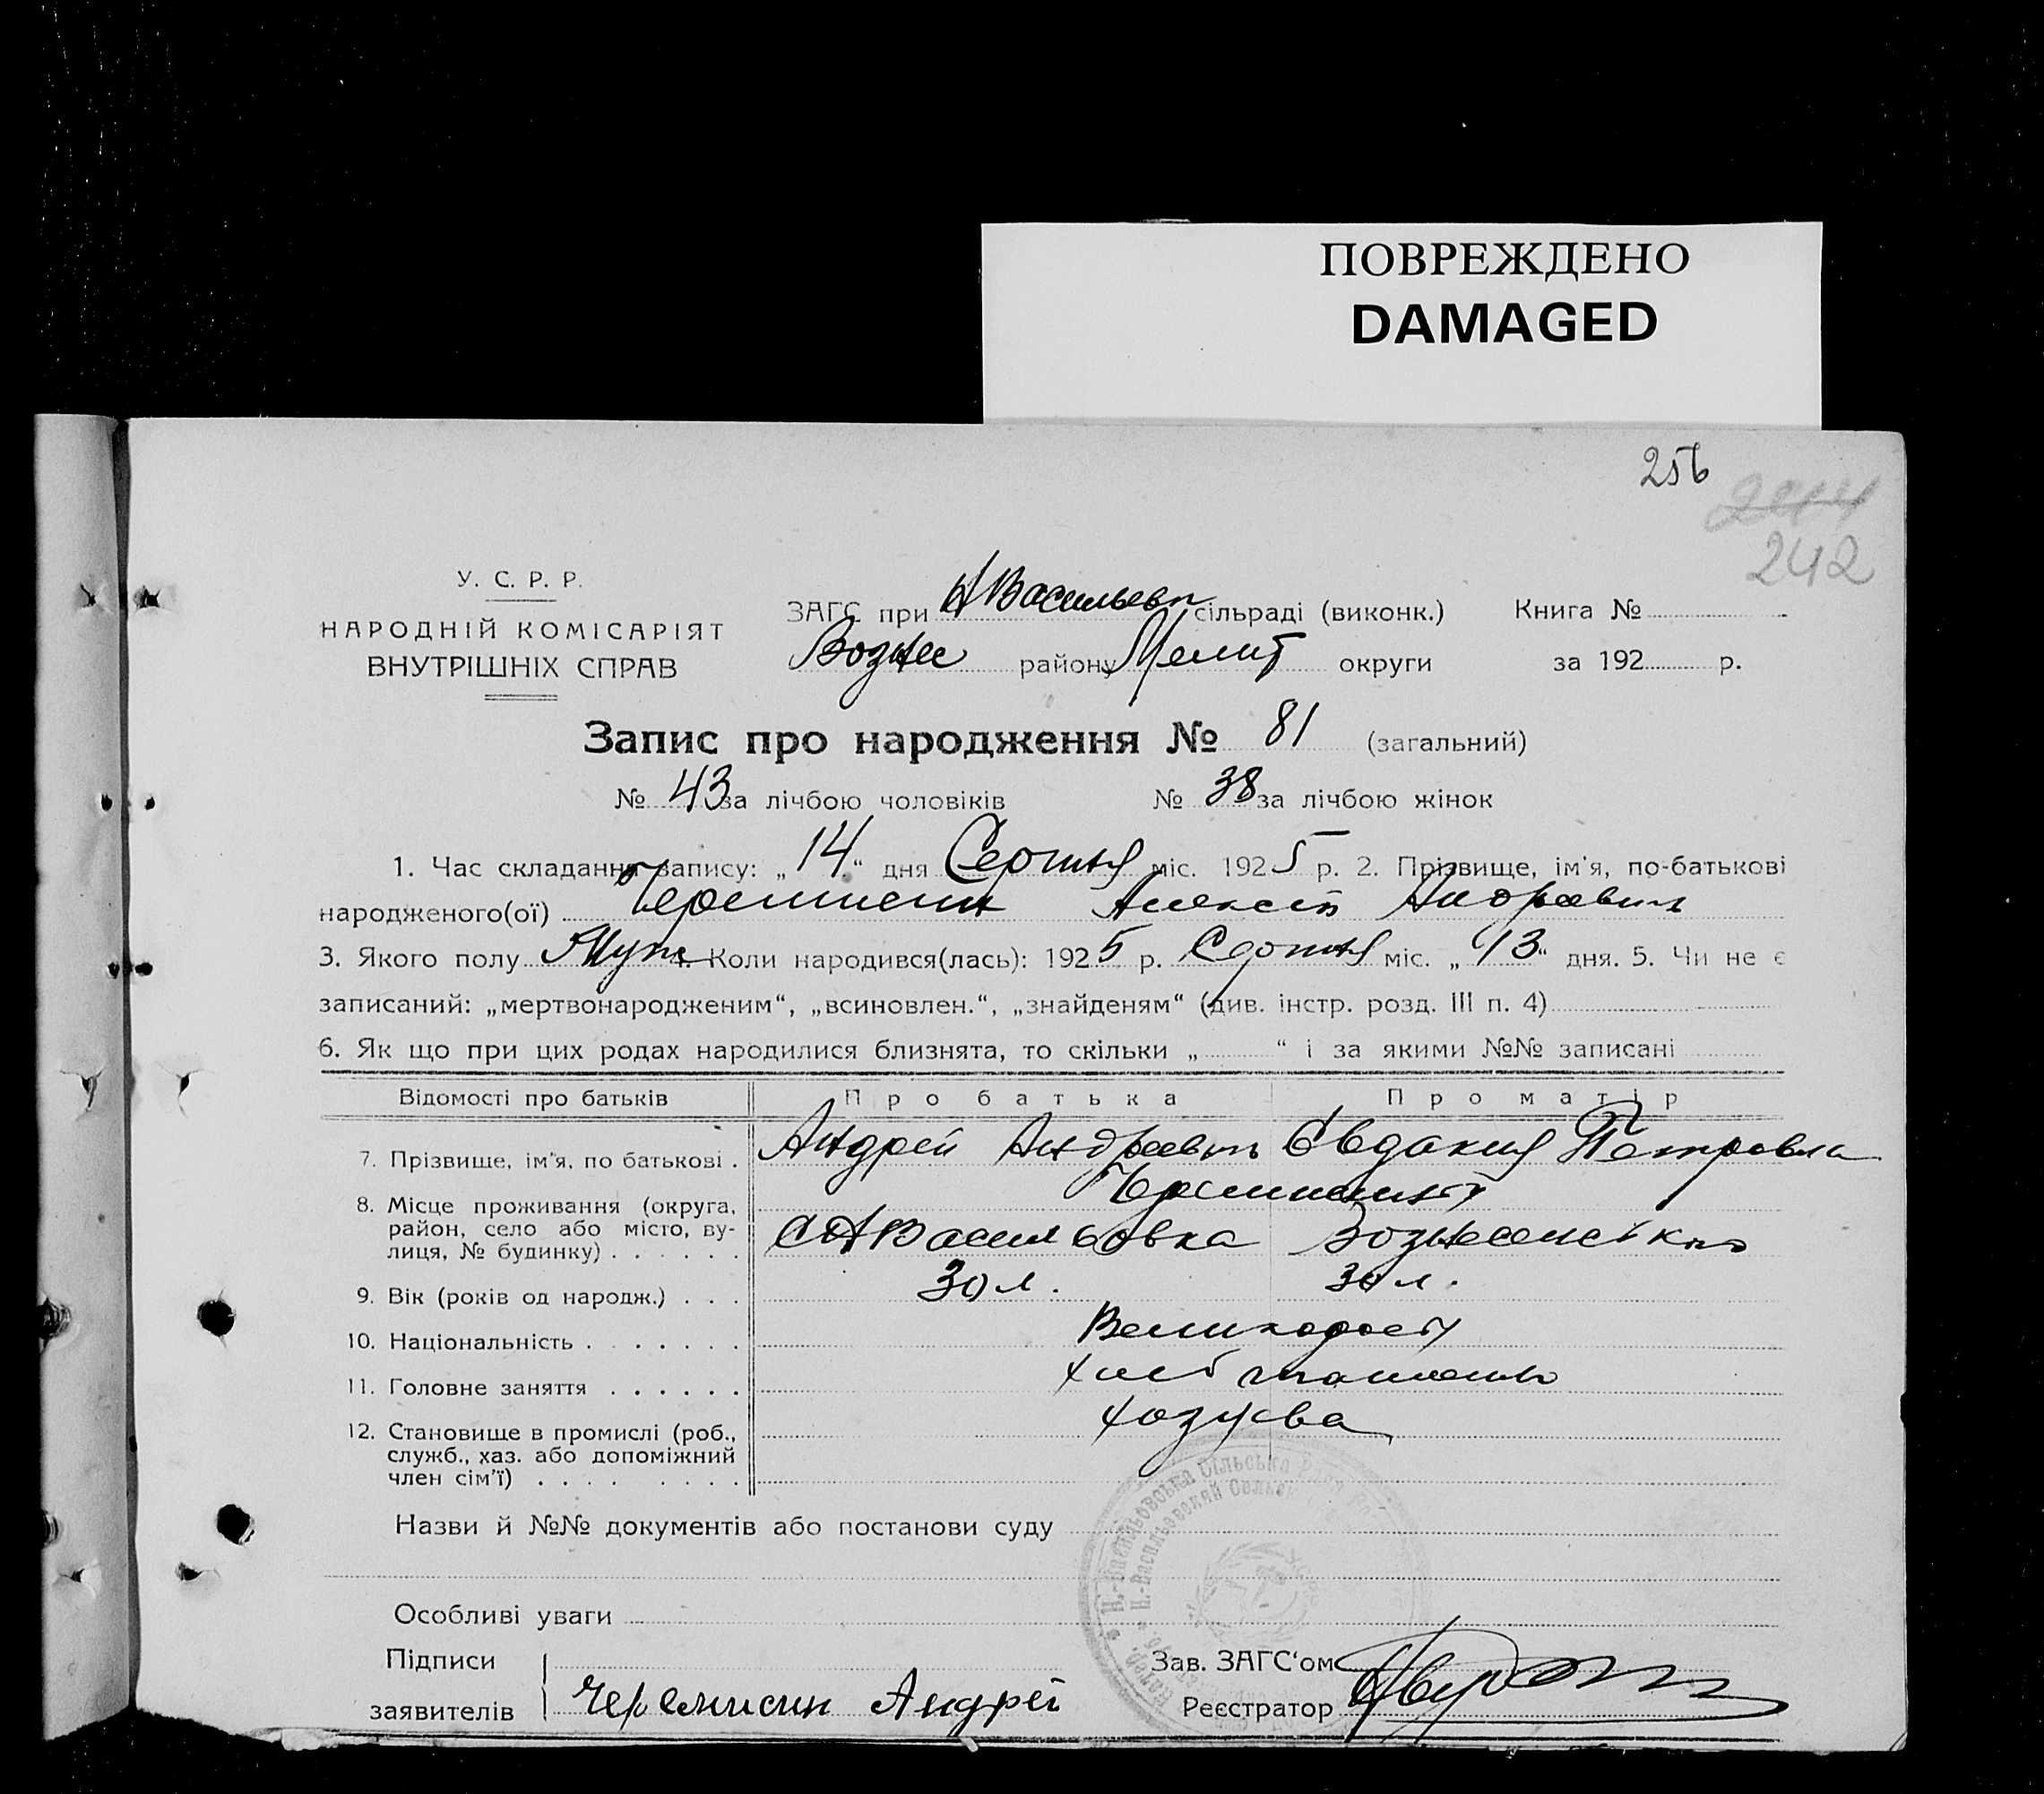 ПОВРЕЖДЕНО
DAMAGED
256
2414
242
У. С. Р. Р.
НАРОДНІЙ КОМІСАРІЯТ
ВНУТРІШНІХ СПРАВ
ЗАГС при Н Васильевк сільраді (виконк.) Книга №
Вознес району Мелит округи за 192 р.
Запис про народження № 81 (загальний)
№ 43 за лічбою чоловіків № 38 за лічбою жінок
1. Час складання запису: „14“ дня міс. 1925 р. 2. Прізвище, ім'я, по-батькові
народженого(ої) Черемисин Алексей Андреевич
3. Якого полу Муж 4. Коли народився(лась): 1925 р. міс. „13“ дня. 5. Чи не є
записаний: „мертвонародженим“, „всиновлен.“, „знайденям“ (див. інстр. розд. III п. 4)
6. Як що при цих родах народилися близнята, то скільки „ “ і за якими №№ записані
Відомості про батьків Про батька Про матір
7. Прізвище, ім'я, по батькові . Андрей Андреевич Евдокия Петровна
8. Місце проживання (округа,
район, село або місто, ву-
лиця, № будинку) . . . . . . С Н Васильевка
9. Вік (років од народж.) . . . 30 л. 30 л.
10. Національність . . . . . . . Великорос
11. Головне заняття . . . . . .
12. Становище в промислі (роб.,
служб., хаз. або допоміжний
член сім'ї) . . . . . . . . хозяева
Назви й №№ документів або постанови суду
Особливі уваги
Підписи
заявителів Черемисин Андрей
Зав. ЗАГС‘ом
Реєстратор